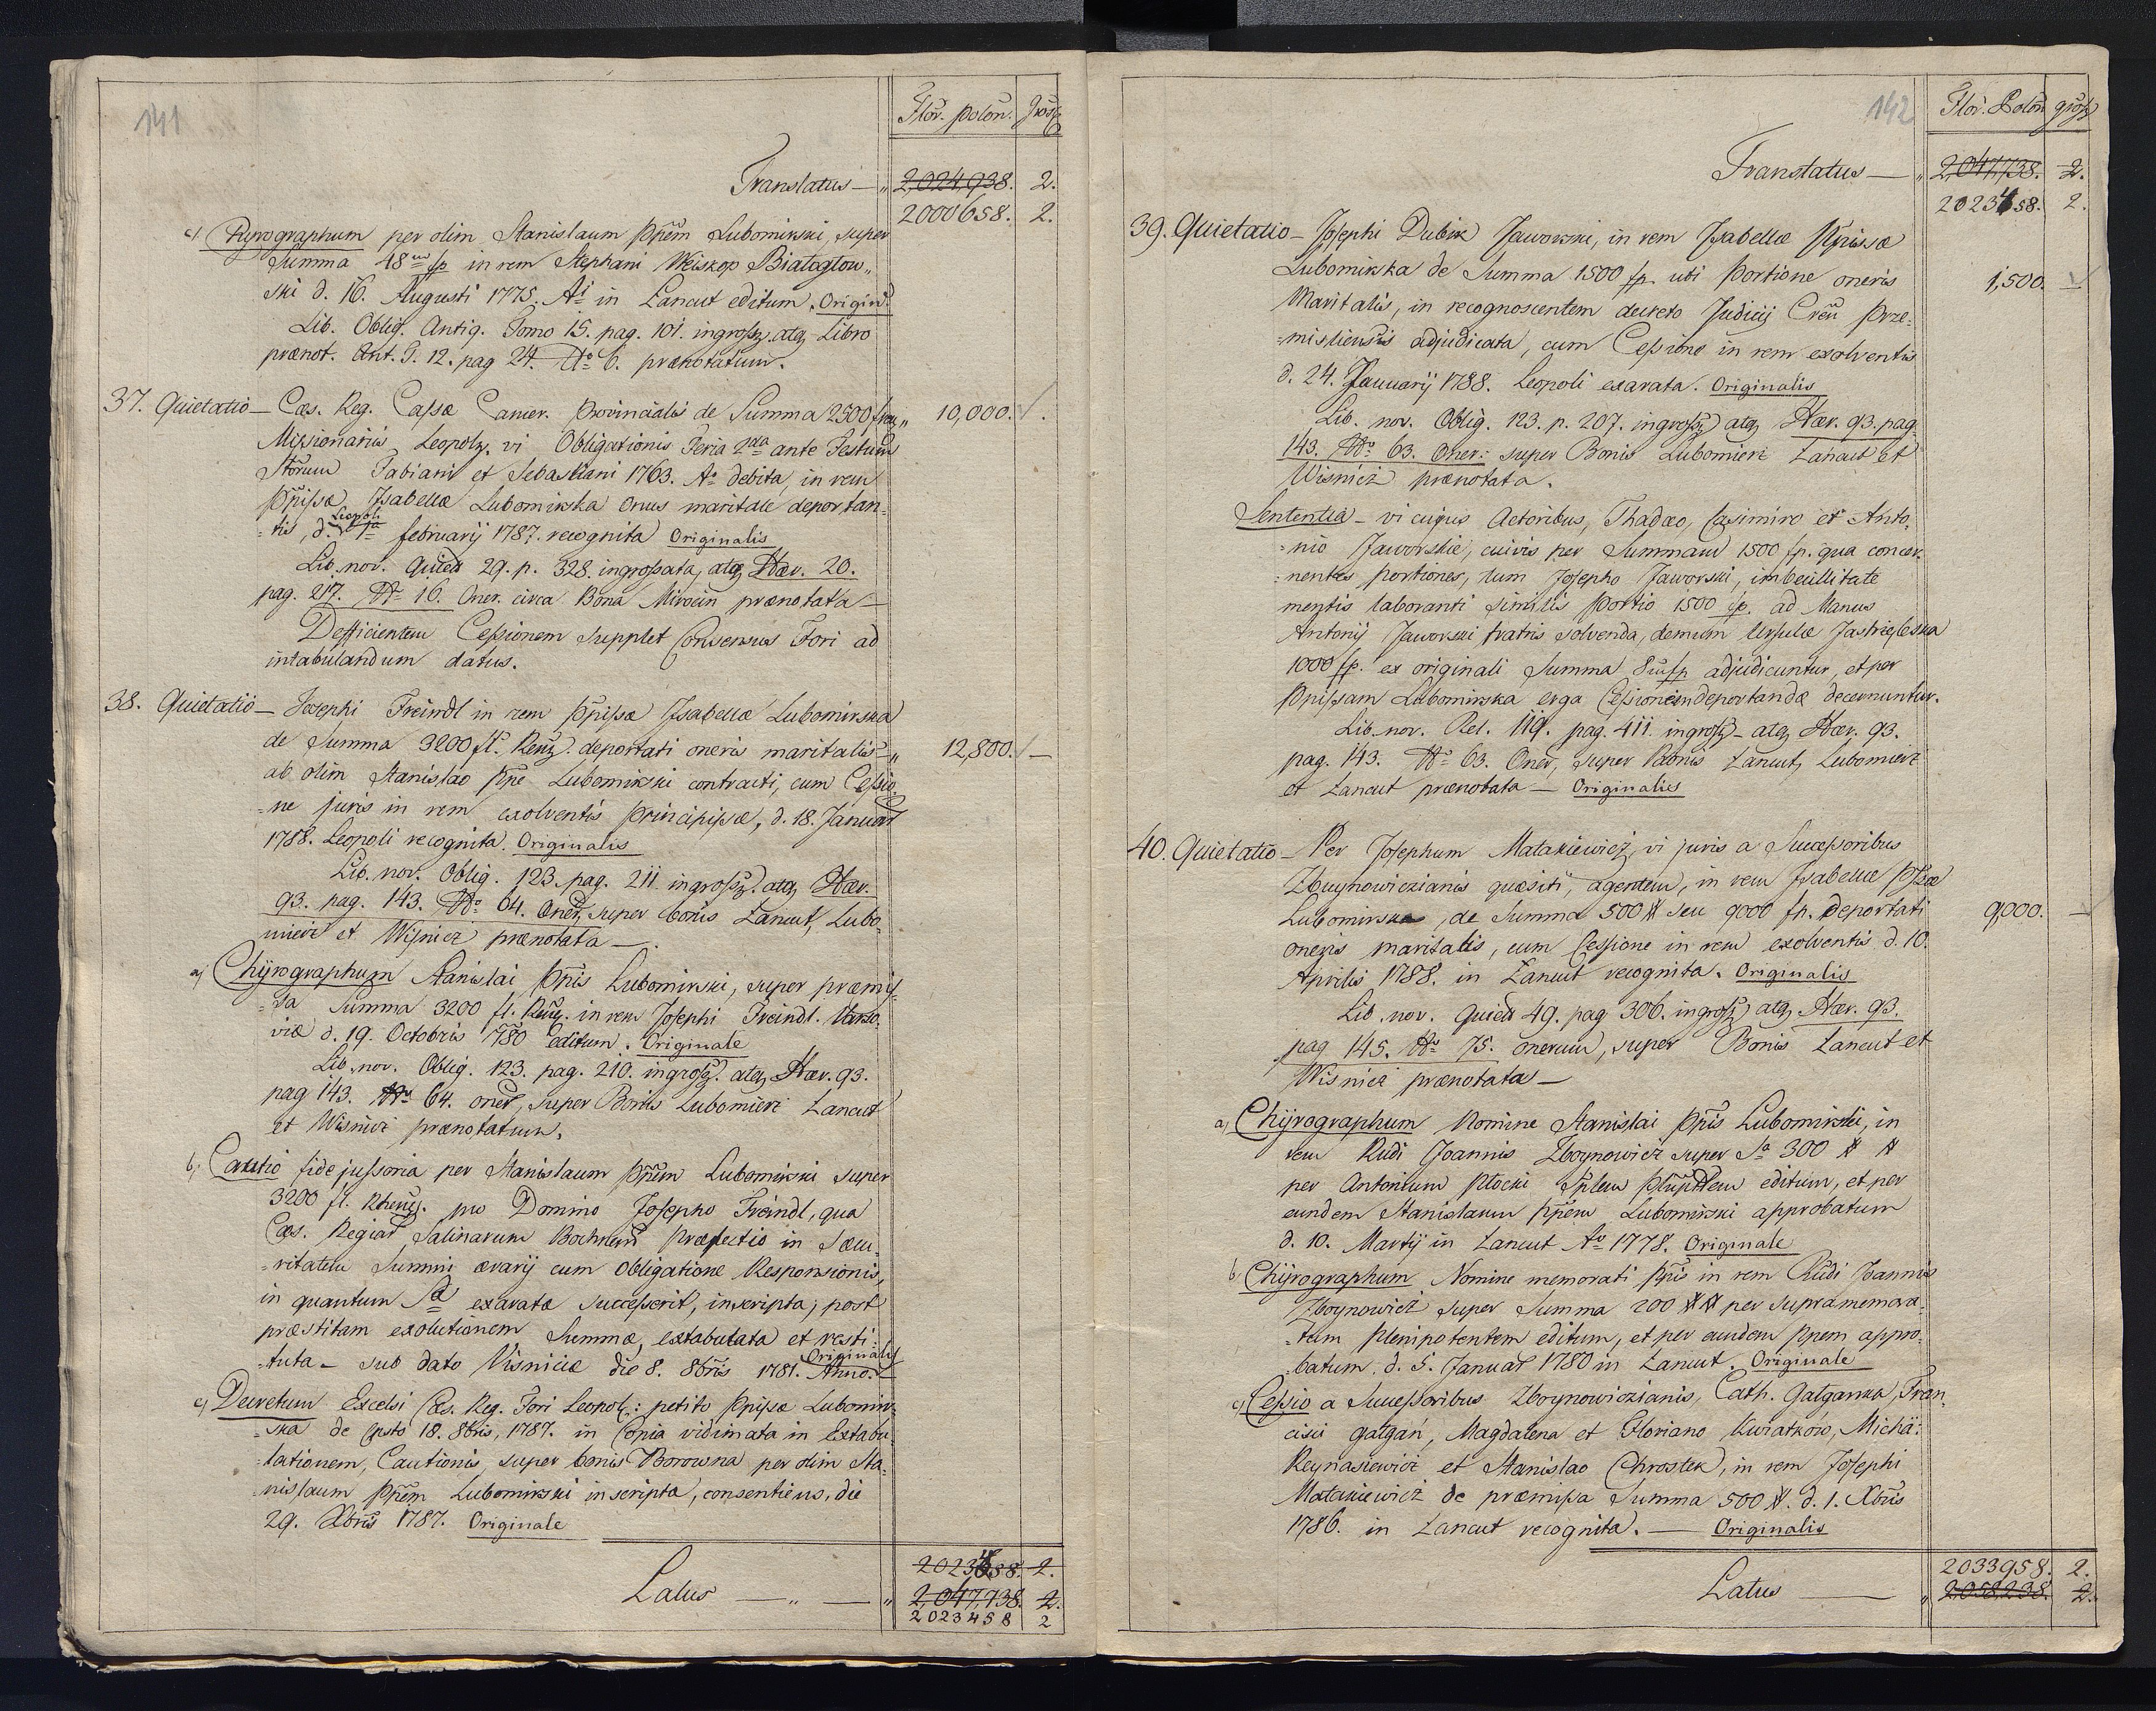 141
Flor. polon. gross
Translatus — " 2,024,938. 2.
2000658. 2.
c) Chyrographum per olim Stanislaum Ppem Lubomirski, super
Summa 18 m fp in rem Stephani Weiskop Białogłow„
ski d. 16. Augusti 1775. Ai in Łancut editum. Origin.
Lib. Oblig. Antiq. Tomo 15. pag. 101. ingross. atq Libro
prænot. Ant. T. 12. pag 24. No 6. prænotatum.
37. Quietatio — Cæs. Reg. Cassæ Camer. Provincialis de Summa 2500 fren„ 10,000.
Missionariis Leopolz. vi Obligationis Feria 2da ante Festum
Storum Fabiani et Sebastiani 1763. Ao debita, in rem
Ppissæ Isabellæ Lubomirska onus maritale deportan-
Leopoli
-tis, d. 1a februarij 1787. recognita Originalis
Lib. nov. Quiet 29. p. 328. ingrossata, atq Hær. 20.
pag. 217. No 16. Oner. circa Bona Mirocin prænotata —
Defficientem Cessionem supplet Consensus Fori ad
intabulandum datus.
38. Quietatio — Josephi Freindl in rem Ppissæ Isabellæ Lubomirska
de Summa 3200 fl. Renz. deportati oneris maritalis — " 12,800. —
ab olim Stanislao Ppe Lubomirski contracti, cum Cessio
-ne juris in rem exolventis Principissæ, d. 18. Januar
1788. Leopoli recognita. Originalis
Lib. nov. Oblig. 123. pag. 211. ingross. atq Hær.
93. pag. 143. No 64. Oner, super bonis Łancut, Lubo-
mierz et Wisnicz prænotata —
a) Chyrographum Stanislai Ppis Lubomirski, super præmis-
-sa Summa 3200 fl. Reng. in rem Josephi Freindl. Varso-
viæ d. 19. Octobris 1780 editum. Originale
Lib. nov. Oblig. 123. pag. 210. ingross. atq Hær. 93.
pag 143. No 64. oner, super Bonis Lubomierz Łancut
et Wisnicz prænotatum.
b) Cautio fidejussoria per Stanislaum Ppem Lubomirski super
3200 fl. Rheng. pro Domino Josepho Freindl, qua
Cæs. Regiar Salinarum Bochnens Præfectio in Secu-
-ritatem Summi ærarij cum Obligatione Responsionis,
in quantum Sa exarata successerit, inscripta; post
præstitam exolutionem Summæ, extabulata et resti-
-tuta — sub dato Visniciæ die 8. 8bris 1781. Anno. Originalis
c) Decretum Excelsi Cæs. Reg. Fori Leopol: petito Ppissæ Lubomir-
-ska de Gesto 18. 8bris, 1787. in Copia vidimata in Extabu-
-lationem, Cautionis, super bonis Borowna per olim Sta-
-nislaum Ppem Lubomirski inscripta, consentiens, die
29. Xbris 1787. Originale
2023458. 2.
Latus — " — " 2,047,738. 2.
2023458 2
142
Flor. Polon gross
Translatus — " 2,047,738. 2.
2023458. 2.
39. Quietatio — Josephi Dubik Jaworski, in rem Isabellæ Ppissæ
Lubomirska de Summa 1500 fp. uti portione oneris 1,500. —
Maritalis, in recognoscentem decreto Judicij Cren Prze-
-misliensis adjudicata, cum Cessione in rem exolventis
d. 24. Januarij 1788. Leopoli exarata. Originalis
Lib. nov. Oblig. 123. p. 207. ingross atq Hær. 93. pag
143. No 63. Oner: super Bonis Lubomierz Łancut et
Wisnicz prænotata.
Sententia — vi cujus Actoribus, Thadæo, Casimiro et Anto-
-nio Jaworskie, cuivis per Summam 1500 fp. qua concer-
-nentes portiones, tum Josepho Jaworski, imbecillitate
mentis laboranti similis portio 1500 fp. ad Manus
Antonij Jaworski fratris solvenda, demum Ursulæ Jastrzębska
1000 fp. ex originali Summa 8 m fp adjudicuntur, et per
Ppissam Lubomirska erga Cessionem deportandæ decernuntur.
Lib. nov. Rel. 119. pag. 411. ingross — atq Hær. 93.
pag. 143. No 63. Oner, super Bonis Łancut, Lubomierz
et Łancut prænotata — Originalis
40. Quietatio — Per Josephum Matakiewicz, vi juris a Successoribus
Zboynowiczianis quæsiti, agentem, in rem Isabellæ Ppssæ
Lubomirska, de Summa 500 # seu 9000 fp. deportati 9,000. —
oneris maritalis, cum Cessione in rem exolventis d. 10.
Aprilis 1788. in Łancut recognita. Originalis
Lib. nov. Quiet 49. pag 306. ingross atq Hær. 93.
pag 145. No 75. onerum, super Bonis Łancut et
Wisnicz prænotata —
a) Chyrographum Nomine Stanislai Ppis Lubomirski, in
rem Rudi Joannis Zboynowicz super Sa 300 # #
per Antonium Płocki editum, et per
eundem Stanislaum Ppem Lubomirski approbatum
d. 10. Martij in Łancut Ao 1778. Originale
b) Chyrographum Nomine memorati Ppis in rem Rudi Joannis
Zboynowicz super Summa 200 ## per supramemora-
-tum Plenipotentem editum, et per eundem Ppem appro-
batum. d. 5. Januar 1780 in Łancut. Originale
c) Cessio a Successoribus Zboynowiczianis, Cath. Gałganka, Fran-
cisci Gałgan, Magdalena et Floriano Kwiatków, Michä:
Reynasiewicz et Stanislao Chrostek, in rem Josephi
Matakiewicz de præmissa Summa 500 #. d. 1. Xbris
1786. in Łancut recognita. — Originalis
2033958. 2.
Latus — " 2,058,238. 2.